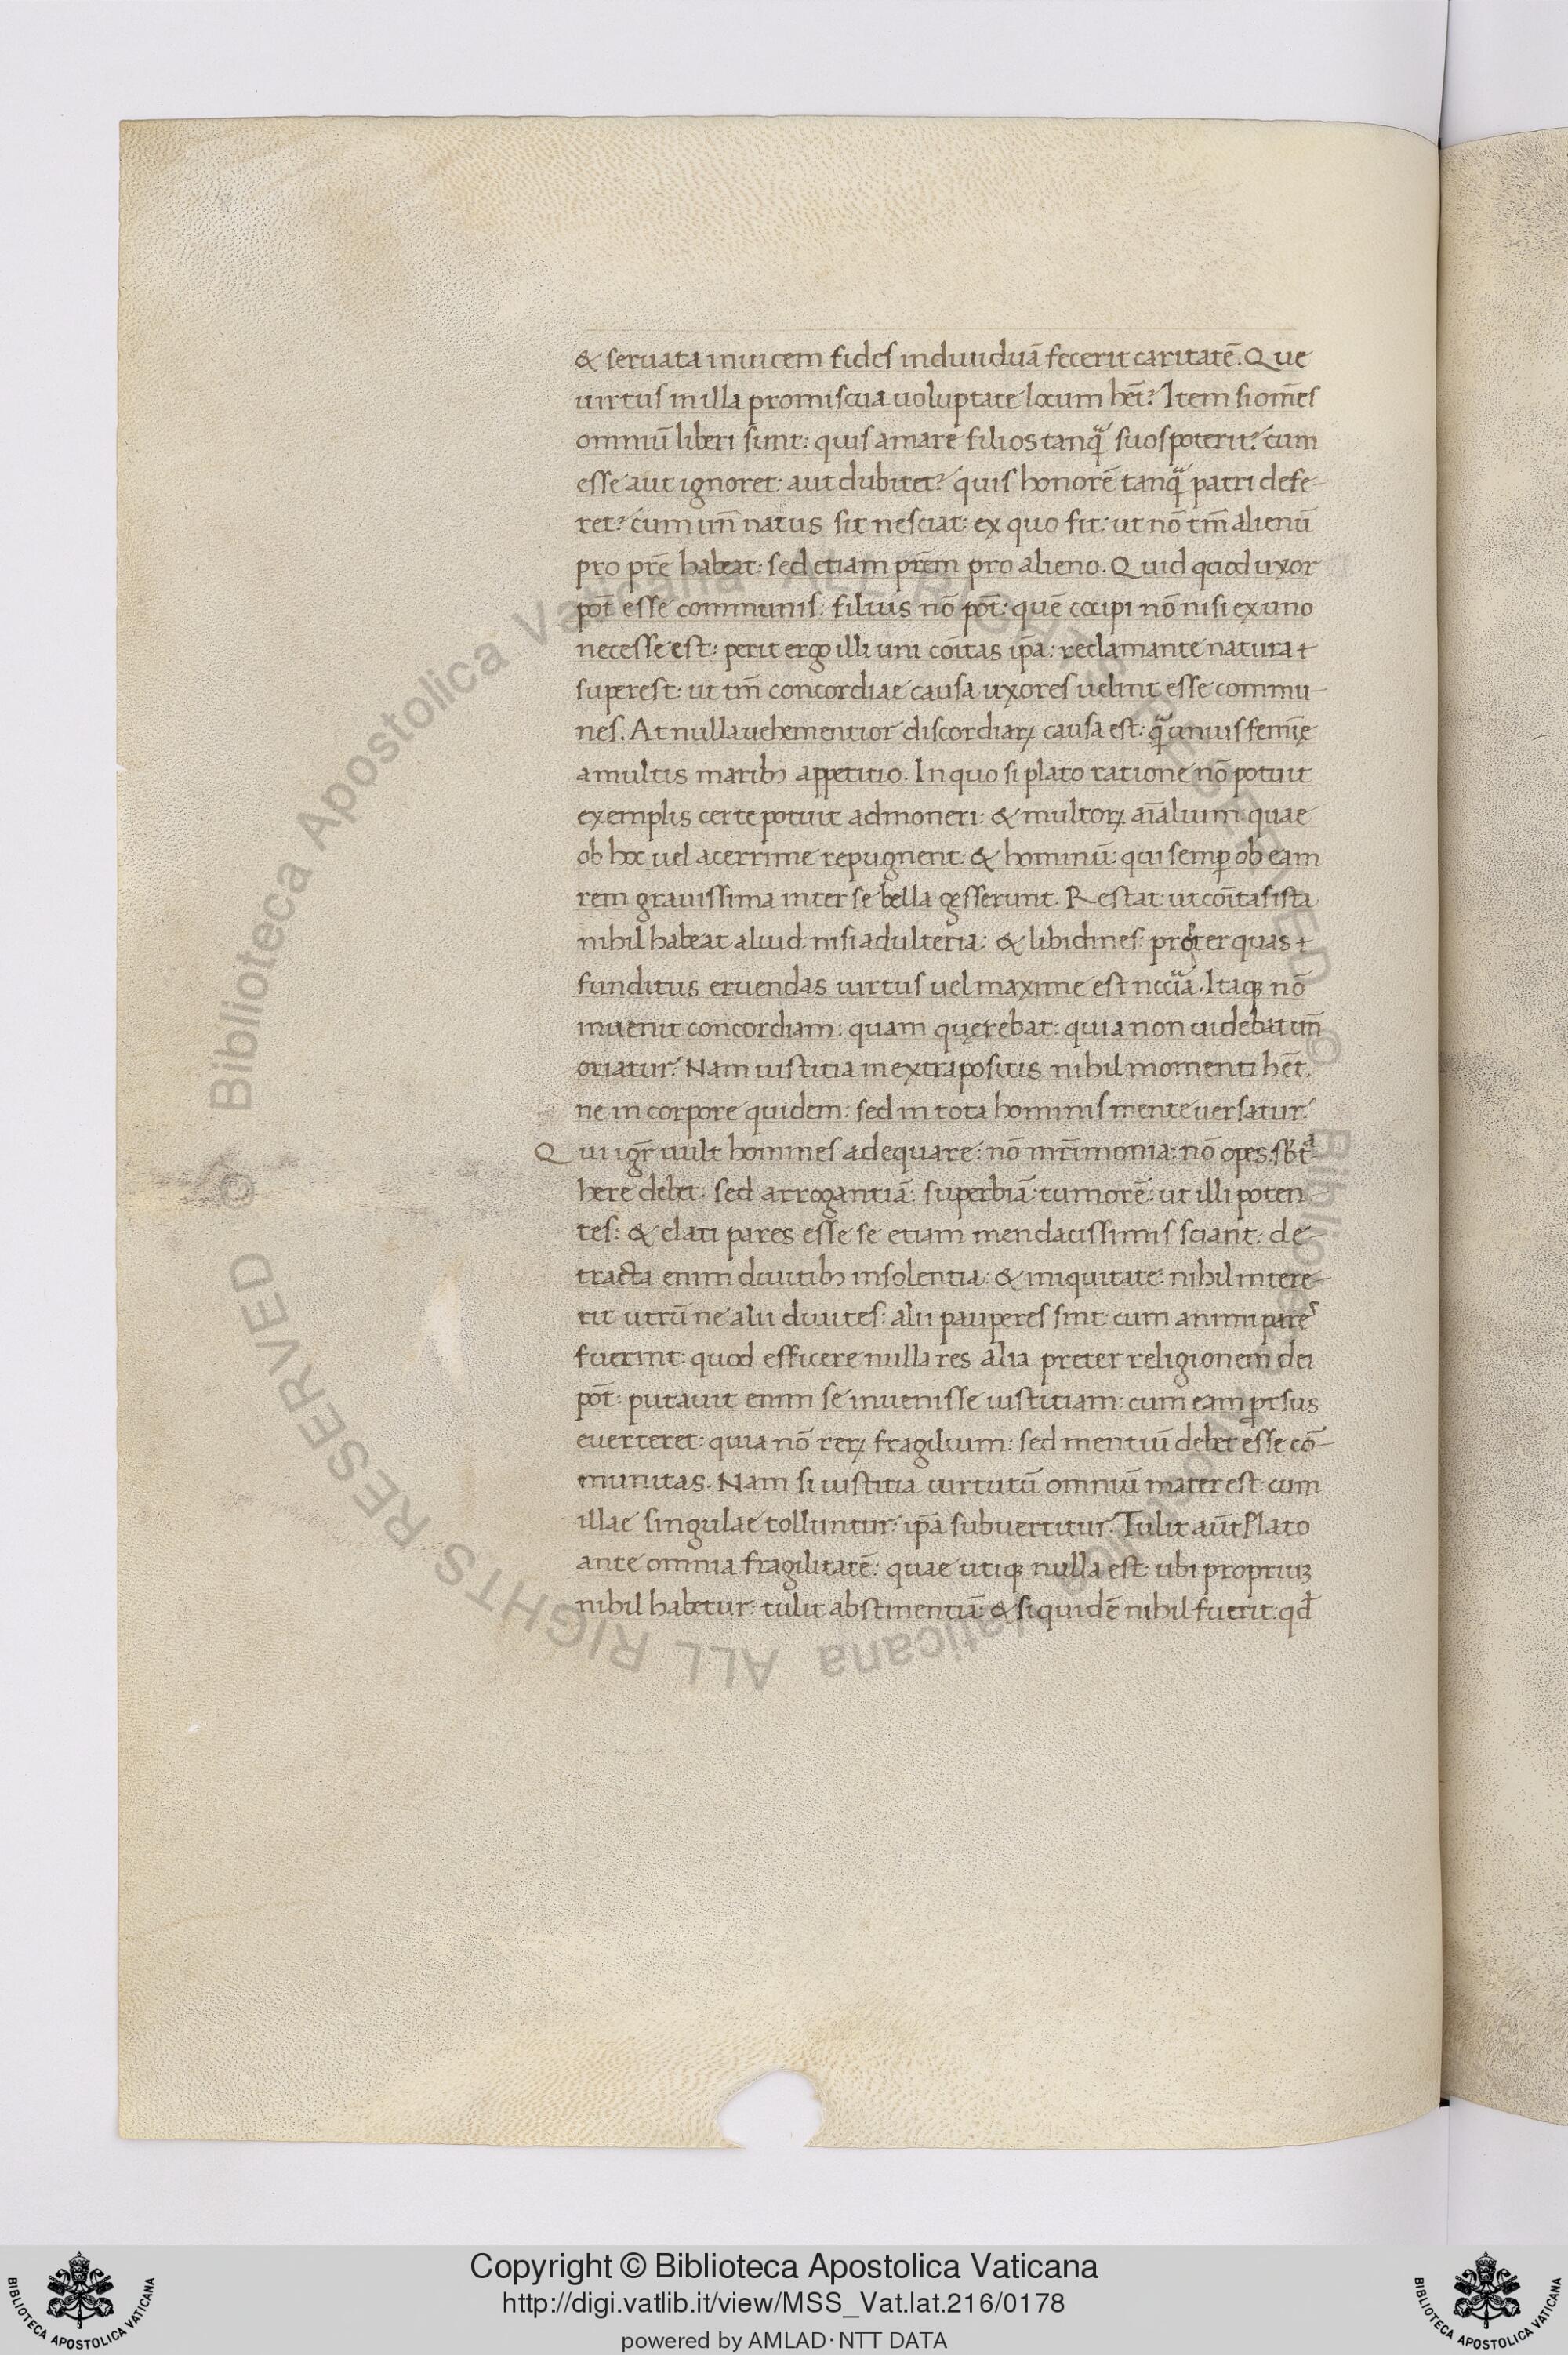 & seruata inuicem fides indiuiduā fecerit caritatē. Que
uirtus in illa promiscua uoluptate locum hēt? Item si om̄es
omniū liberi sunt: quis amare filios tanq̃ suos poterit? cum
esse aut ignoret: aut dubitet? quis honorē tanq̃ patri defe-
ret? cum un̄ natus sit nesciat: ex quo fit: ut nō tm̄ alienū
pro prē habeat: sed etiam prēm pro alieno. Quid quod uxor
pōt esse communis: filius nō pōt: quē cōcipi nō nisi ex uno
necesse est: perit ergo illi uni cōītas ip̄a: reclamante natura +
superest: ut tm̄ concordiae causa uxores uelint esse commu-
nes. At nulla uehementior discordiaꝝ causa est: q̃ unius femīe
a multis maribꝫ appetitio. In quo si plato ratione nō potuit
exemplis certe potuit admoneri: & multoꝝ aīalium quae
ob hoc uel acerrime repugnent: & hominū: qui semꝑ ob eam
rem grauissima inter se bella gesserunt. Restat ut cōītas ista
nihil habeat aliud: nisi adulteria: & libidines: propter quas +
funditus eruendas uirtus uel maxime est nccīa. Itaqꝫ nō
inuenit concordiam: quam quęrebat: quia non uidebat un̄
oriatur? Nam iustitia in extra positis nihil momenti hēt.
ne in corpore quidem: sed in tota hominis mente uersatur.
Qui igr̄ uult homines adequare: nō mr̄imonia: nō opes: sb̄t̃a-
here debet: sed arrogantiā: superbiā: tumorē: ut illi poten
tes: & elati pares esse se etiam mendacissimis sciant: de-
tracta enim diuitibꝫ insolentia: & iniquitate: nihil intere-
rit utrū ne alii diuites: alii pauperes sint: cum animi pares
fuerint: quod efficere nulla res alia preter religionem dei
pōt: putauit enim se inuenisse iustitiam: cum eam ꝓrsus
euerteret: quia nō reꝝ fragilium: sed mentiū debet esse cō-
munitas. Nam si iustitia uirtutū omniū mater est: cum
illae singulae tolluntur: ip̄a subuertitur. Tulit aūt Plato
ante omnia fragilitatē: quae utiqꝫ nulla est: ubi propriuꝫ
nihil habetur: tulit abstinentiā: & siquidē nihil fuerit: qd̄
Copyright © Biblioteca Apostolica Vaticana
http://digi.vatlib.it/view/MSS_Vat.lat.216/0178
powered by AMLAD·NTT DATA
BIBLIOTECA APOSTOLICA VATICANA
BIBLIOTECA APOSTOLICA VATICANA
© Biblioteca Apostolica Vaticana ALL RIGHTS RESERVED
© Biblioteca Apostolica Vaticana ALL RIGHTS RESERVED